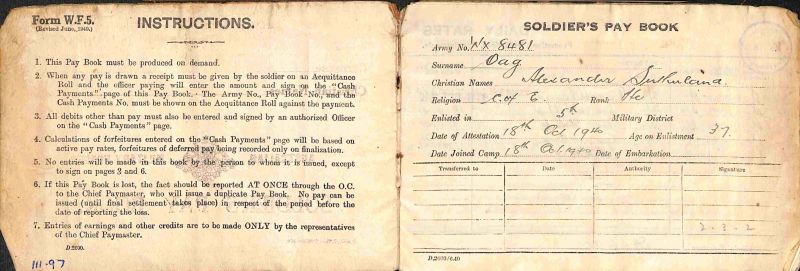 Form W.F.5.
(Revised June, 1940.)
INSTRUCTIONS.
1. This Pay Book must be produced on demand.
2. When any pay is drawn a receipt must be given by the soldier on an Acquittance
Roll and the officer paying will enter the amount and sign on the "Cash
Payments" page of this Pay Book. The Army No., Pay Book No., and the
Cash Payments No. must be shown on the Acquittance Roll against the payment.
3. All debits other than pay must also be entered and signed by an authorized Officer
on the "Cash Payments" page.
4. Calculations of forfeitures entered on the "Cash Payments" page will be based on
active pay rates, forfeitures of deferred pay being recorded only on finalization.
5. No entries will be made in this book by the person to whom it is issued, except
to sign on pages 3 and 6.
6. If this Pay Book is lost, the fact should be reported AT ONCE through the O.C.
to the Chief Paymaster, who will issue a duplicate Pay Book. No pay can be
issued (until final settlement takes place) in respect of the period before the
date of reporting the loss.
7. Entries of earnings and other credits are to be made ONLY by the representatives
of the Chief Paymaster.
D.2070.
111-97
SOLDIER'S PAY BOOK
Army No. WX 8481
Surname Oag
Christian Names Alexander Sutherland.
Religion C of E. Rank Pte
Enlisted in 5th Military District
Date of Attestation 18th Oct 1940 Age on Enlistment 37.
Date Joined Camp 18th Oct 1940 Date of Embarkation
Transferred to Date Authority Signature
2-3-2
D.2070/6.40